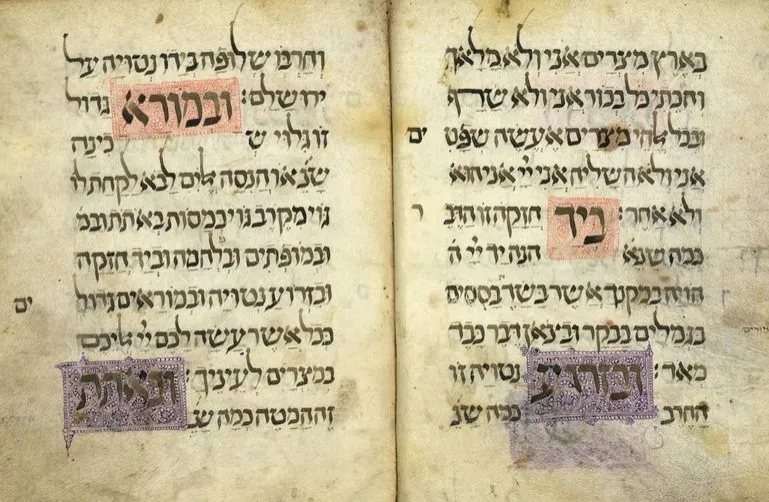 בארץ מצרים אני ולא מלאך
והכתי כל בכור אני ולא שרף
ובכל אלהי מצרים אעשה שפט ים
אני ולא השליח אני ייי אני הוא
ולא אחר: ביד חזקה זו הדב ר
כמה שנא הנה יד ייי ה
הויה במקנך אשר בשד בססים
בגמלים בבקר ובצאן דבר כבד
מאד: ובזרוע נטויה זו
החרב כמה שנ
וחרבו שלופה בידו נטויה על
ירושלם: ובמורא גדול
זו גלוי ש כינה
שנא או הנסה אלים לבא לקחת לו
גוי מקרב גוי במסות באתת ובמ
ובמופתים ובמלחמה וביד חזקה
ובזרוע נטויה ובמוראים גדול ים
ככל אשר עשה לכם ייי אליכם
במצרים לעיניך: ובאתת
זה המטה כמה שנ